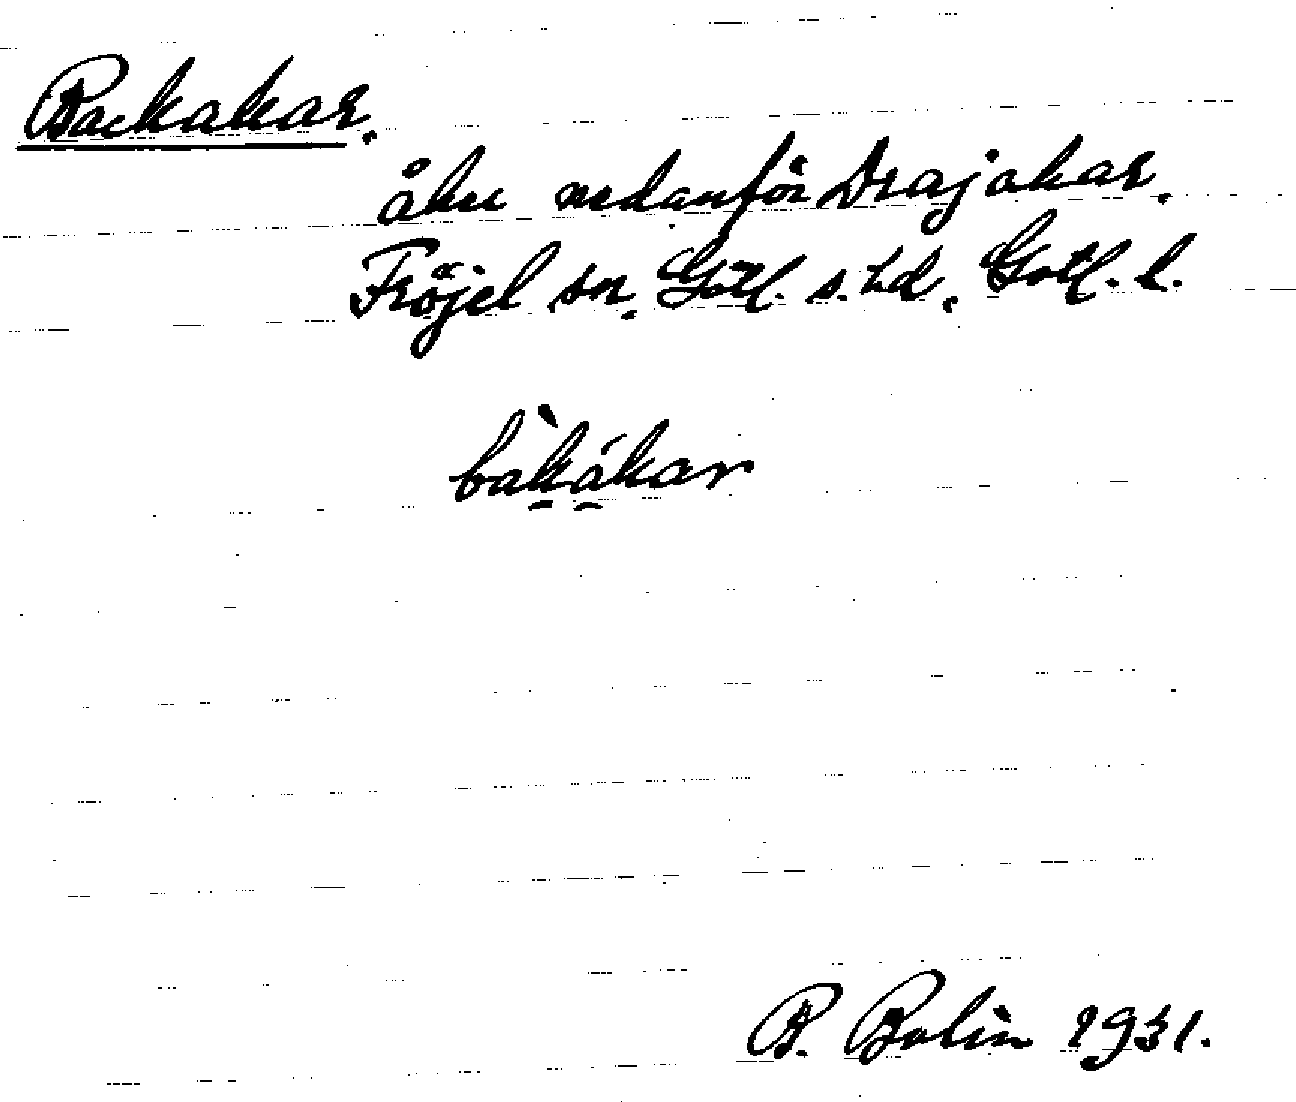 Backakar.
åker nedanför Drajakar.
Fröjel sn. Gotl. s. hd. Gotl. l.
bàk̠á̠kar
B. Bolin 1931.